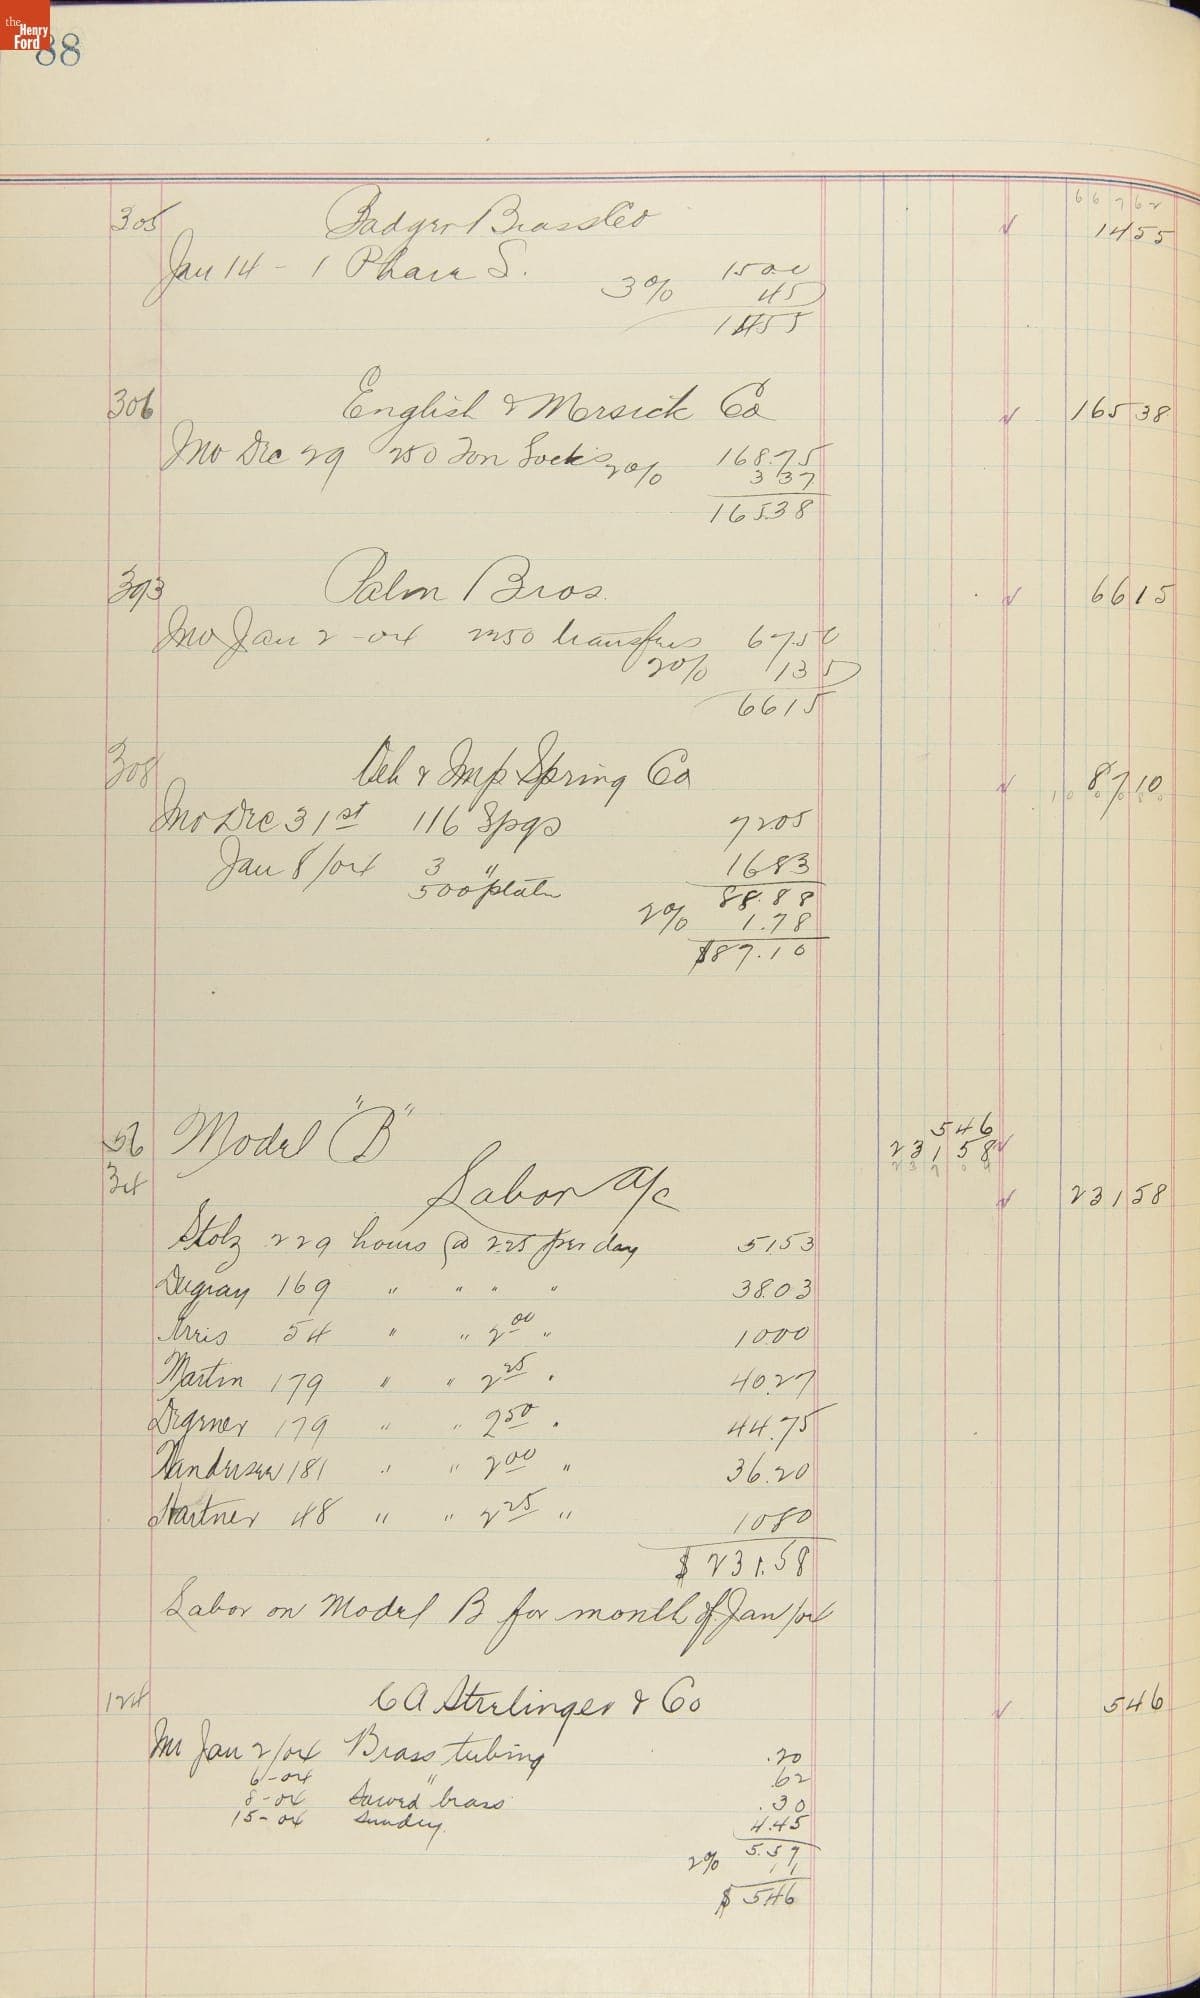 the Henry Ford
88
66762
305 Badger Brass Co 1455
Jan 14 - 1 S. 15 00
3% 45
1455
306 English & Mersick Co 165 38
Inv Dec 29 250 Ton Locks 168.75
2% 3 37
165.38
393 Palm Bros. 66 15
Inv Jan 2 -04 2250 transfers 67.50
2% 1 35
66 15
308 & Imp Spring Co 87 10
Inv Dec 31st 116 Spgs 72 05
Jan 8/04 3 " 16 83
500 plates 88.88
2% 1.78
$87.10
546
56 Model "B" 231 58
34 Labor a/c 231 58
Stolz 229 hours @ 2.25 per day 51.53
Dugray 169 " " " " 38.03
Arris 54 " " 2 00 " 10.00
Martin 179 " " 2 25 " 40.27
Degener 179 " " 2 50 " 44.75
Vandersee 181 " " 2 00 " 36.20
Hartner 48 " " 2 25 " 10 80
$ 231.58
Labor on Model B for month of Jan/04
124 C A Strelinger & Co 5 46
Inv Jan 2/04 Brass tubing .20
6-04 " .62
8-04 Sawed brass .30
15-04 Sundry 4.45
5.57
2% 11
$ 5 46